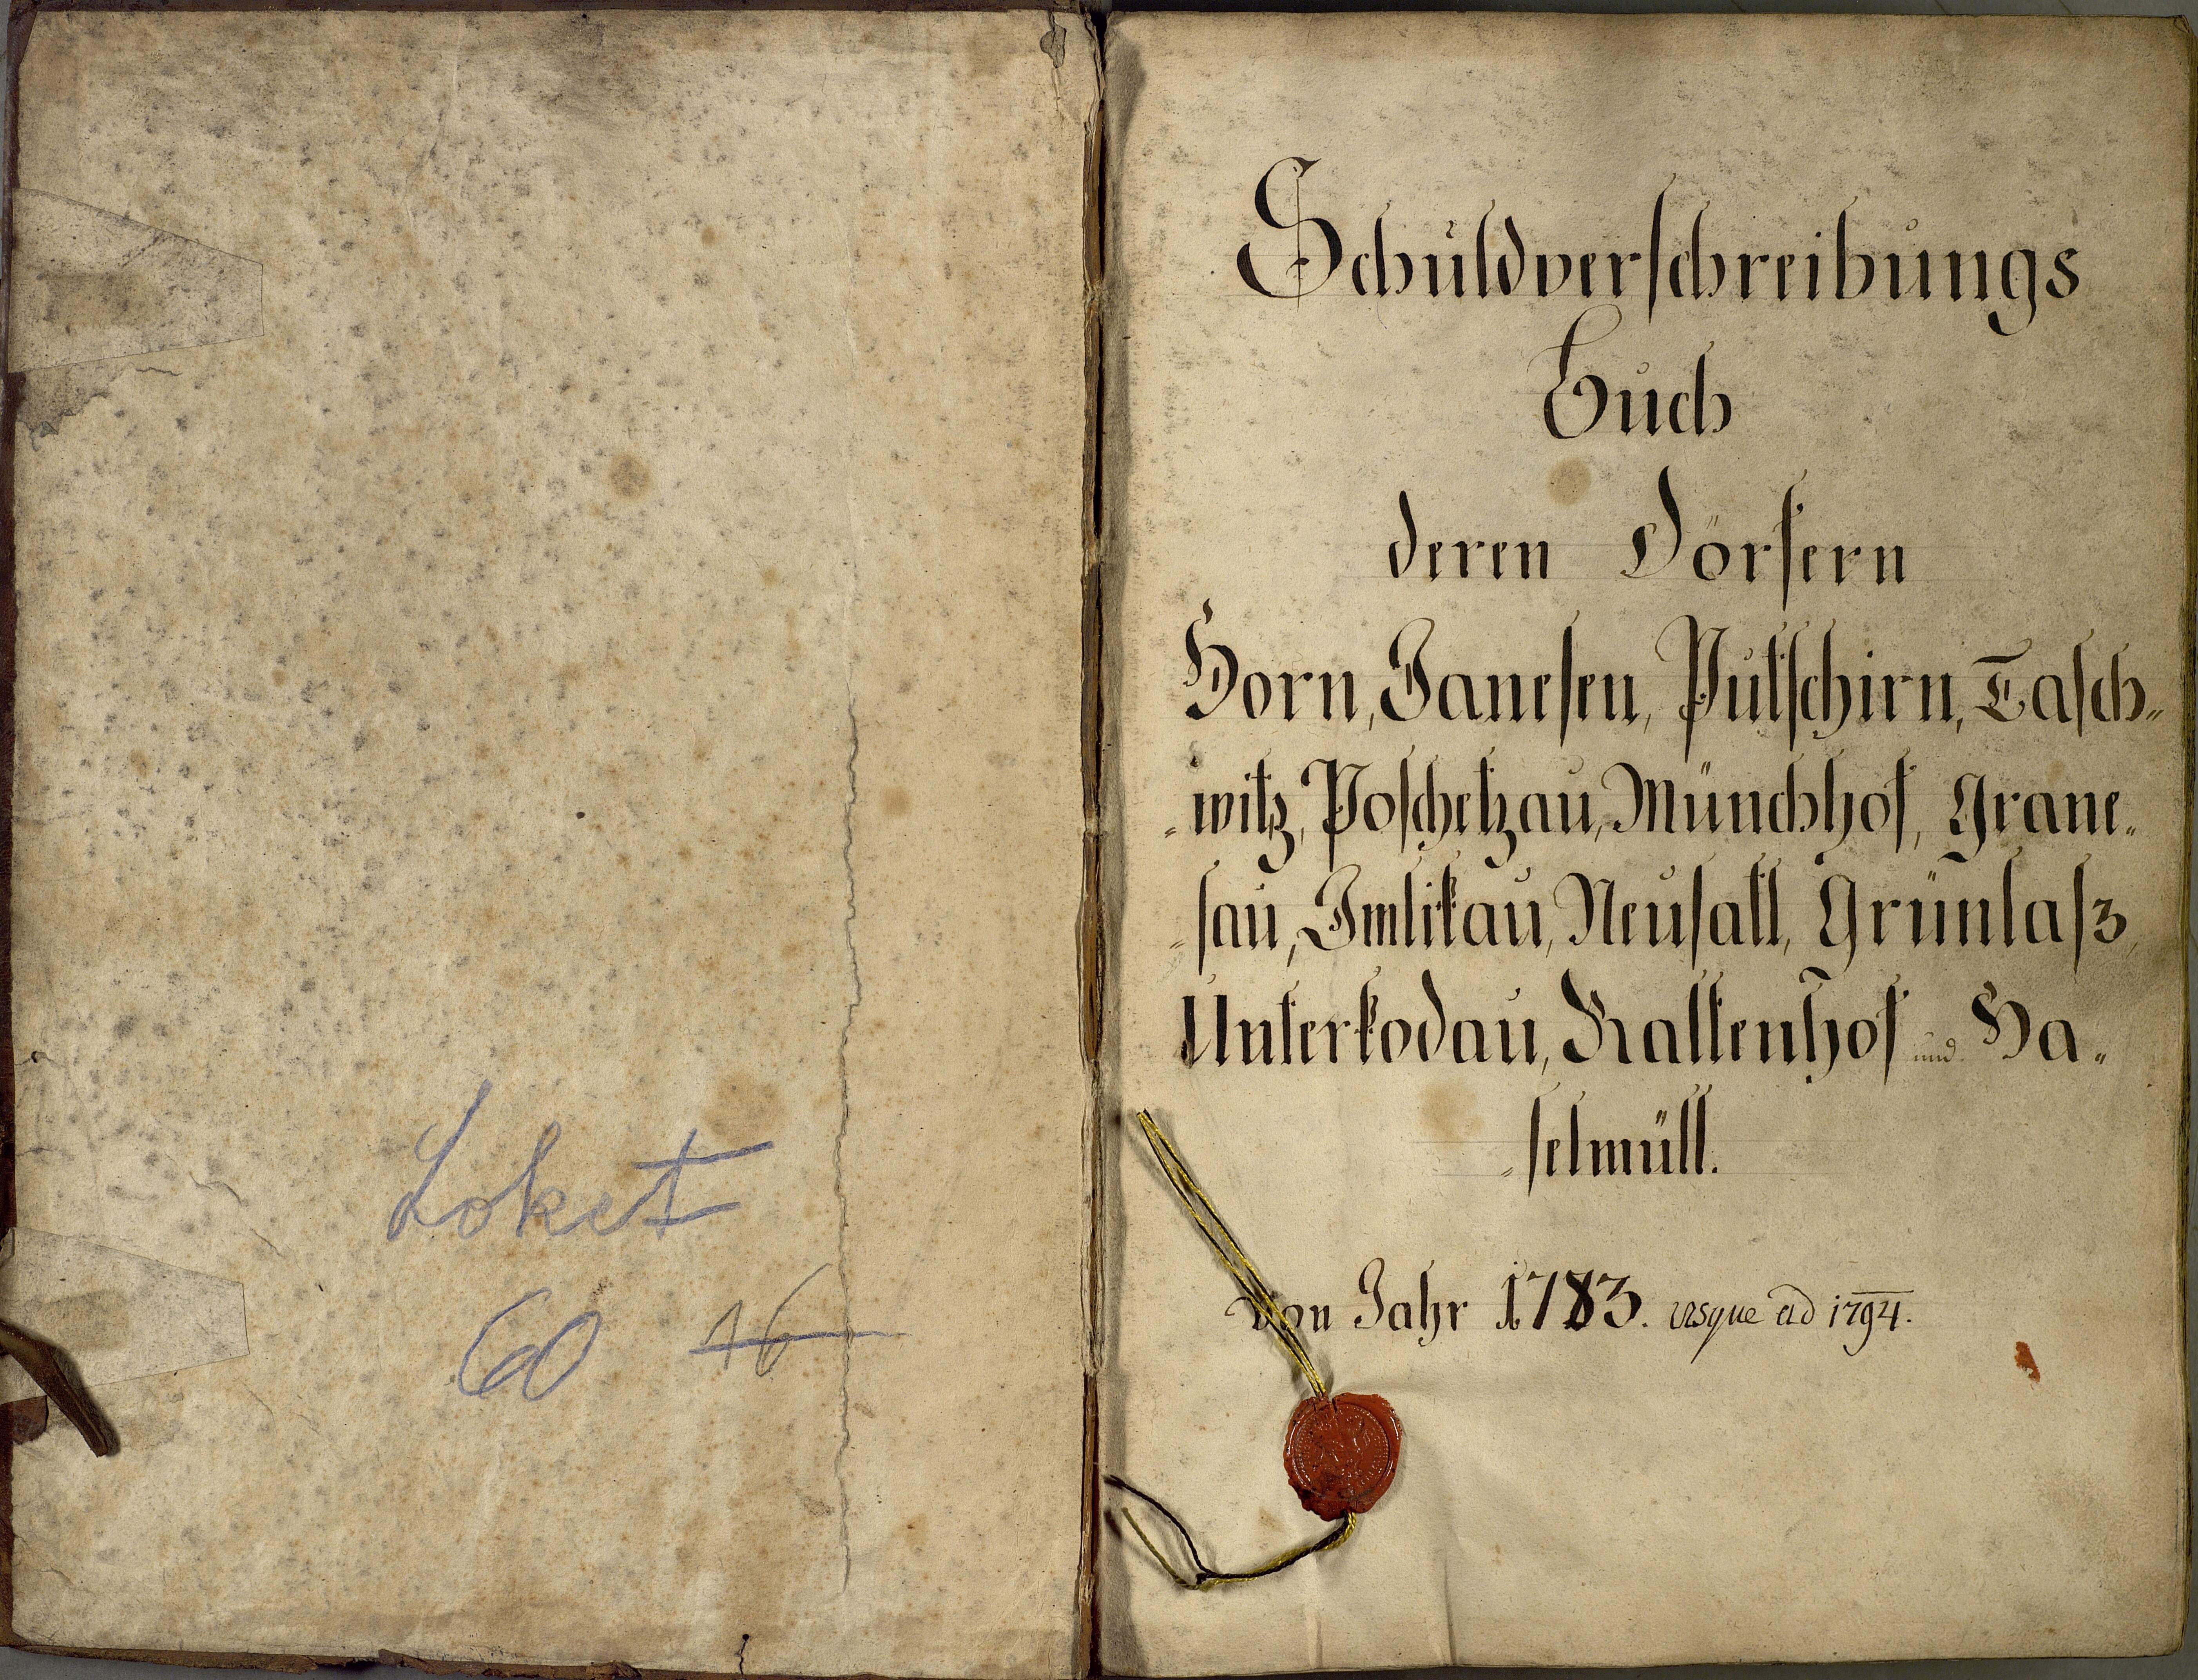 Loket
60 16
Schuldverschreibungs
Buch
deren Dörfern
Horn, Janesen, Putschirn, Tasch„
„witz, Poschetzau, Münchhof, Grane„
„sau, Imlikau, Neusatl, Grünlasz,
Unterkodau, Kaltenhof und Ha„
„selmüll.
Von Jahr 1783. usque ad 1794.